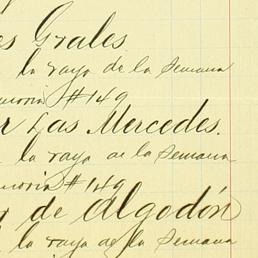 es Grales
la raya de la Semana
emoria #149
r Las Mercedes.
la raya de la Semana
emoria #149
de Algodón
la raya de la Semana